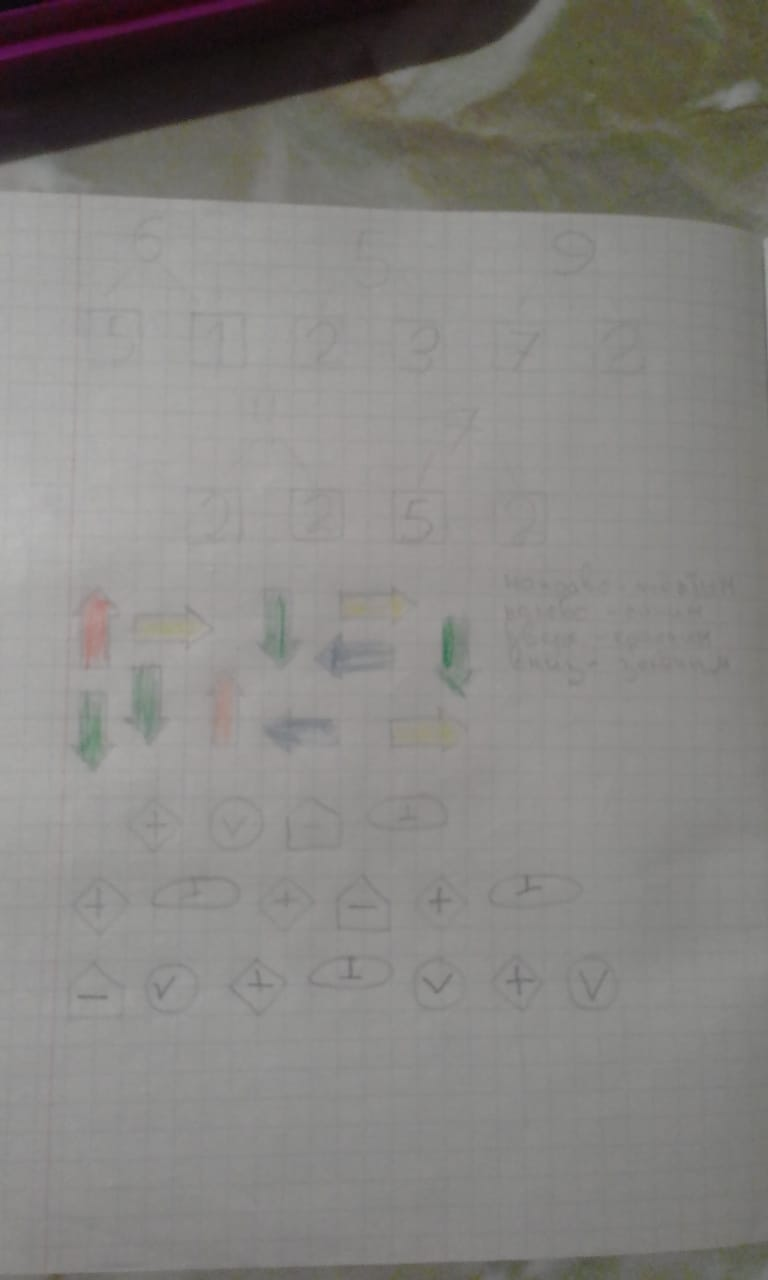 6 5 9
5 1 2 3 7 2
7
2 2 5 2
направо - жёлтым
налево - синим
вверх - красным
вниз - зелёным
+ V - I
+ I + - + I
- V + I V + V